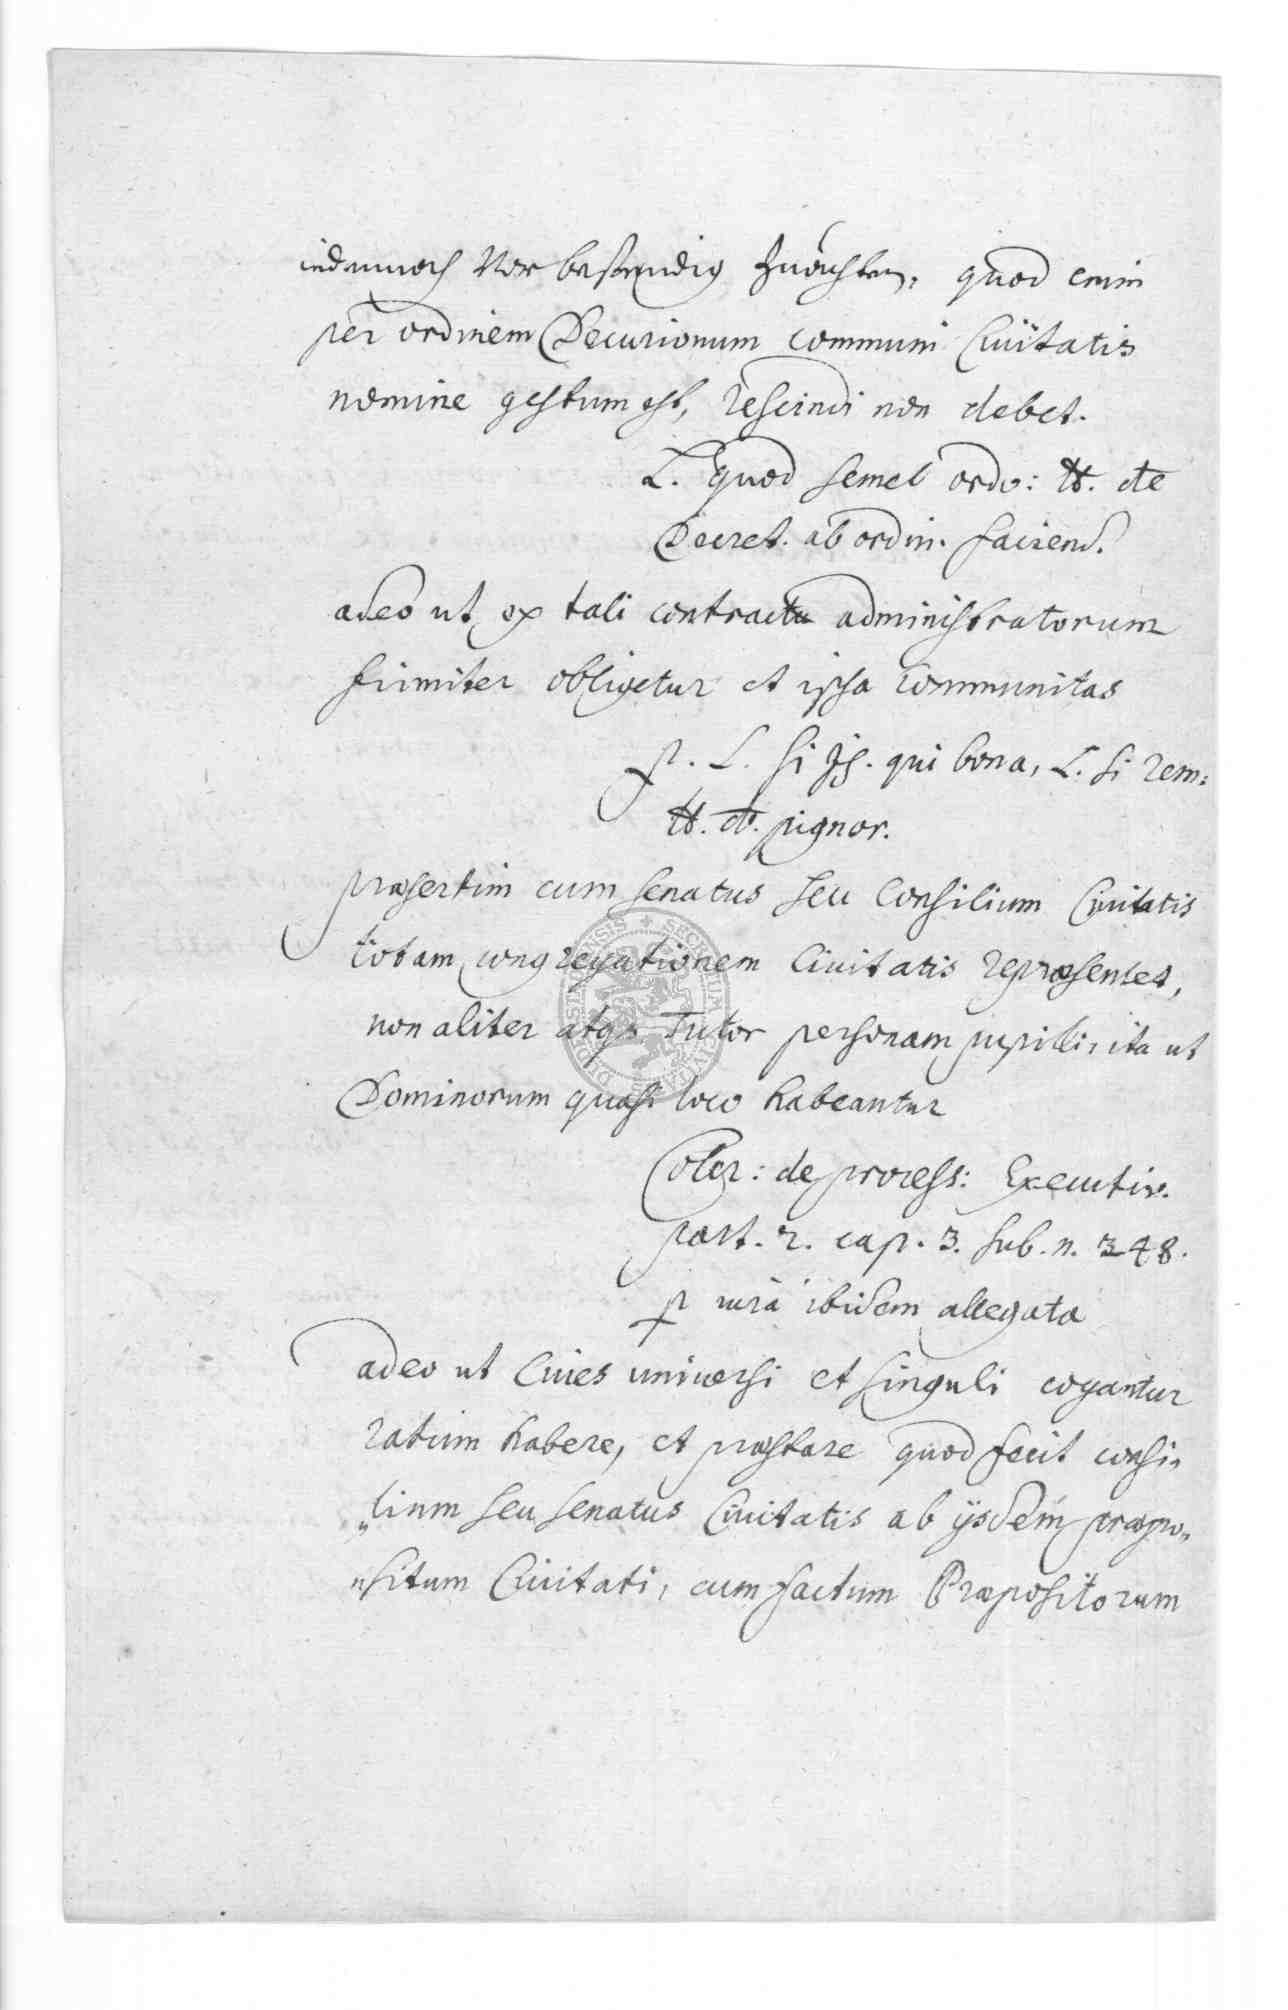 iedennoch vor bestendig Zuachten, quod enim
per ordinem Decurionum communi Ciuitatis
nomine gestum est, rescindi non debet.
L. quod semel ordo: ff. de
Decret. ab ordin. faciend.
adeo ut ex tali contractu administratorum
firmiter obligetur et ipsa communitas
p. L. si is. qui bona, L. si rem:
ff. de. pignor.
præsertim cum senatus seu Consilium Ciuitatis
totam congregationem Ciuitatis repræsentet,
non aliter atq3 Tutor personam pupilli, ita ut
Dominorum quasi loco habeantur
Coler: de process: Executiv.
part. 2. cap. 3. sub. n. 348.
p iura ibidem allegata
adeo ut Ciues universi et singuli cogantur
ratum habere, et præstare quod fecit consi„
„lium seu senatus Ciuitatis ab ijsdem præpo„
„situm Ciuitati, cum factum Præpositorum
SECRETUM CIVITAS